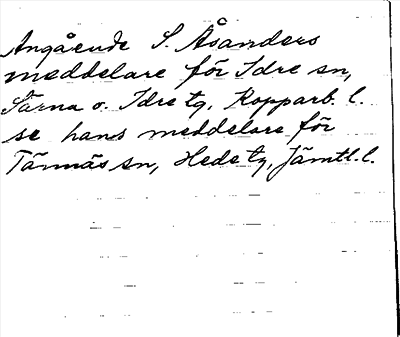 Angående S. Åsanders
meddelare för Idre sn,
Särna o. Idre tg, Kopparb. l.
se hans meddelare för
Tännäs sn, Hede tg, Jämtl. l.